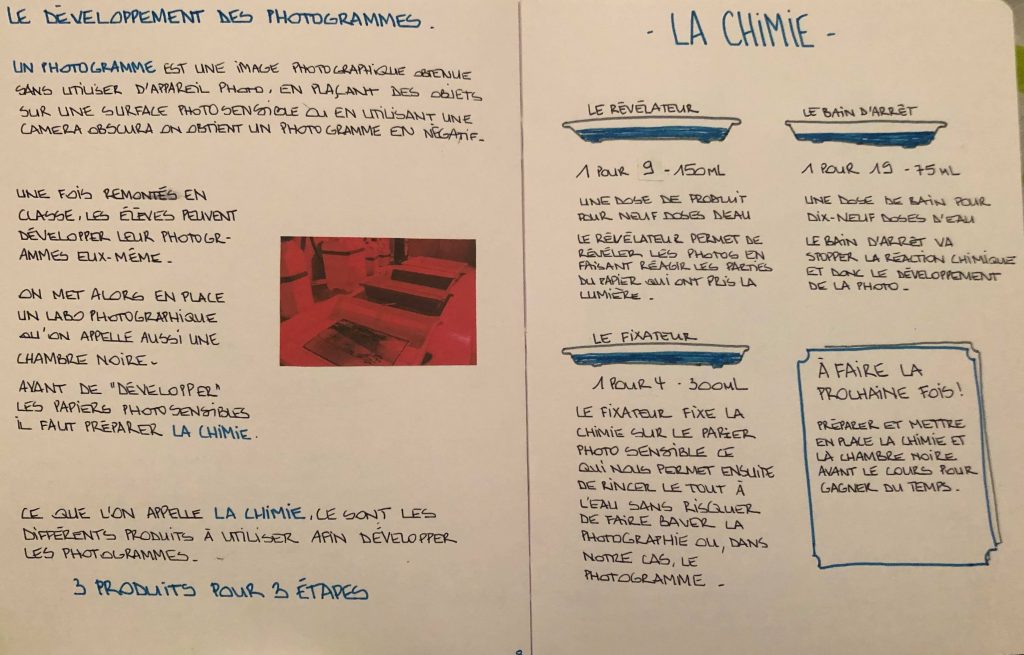 LE DÉVELOPPEMENT DES PHOTOGRAMMES.
UN PHOTOGRAMME EST UNE IMAGE PHOTOGRAPHIQUE OBTENUE
SANS UTILISER D'APPAREIL PHOTO, EN PLAÇANT DES OBJETS
SUR UNE SURFACE PHOTOSENSIBLE OU EN UTILISANT UNE
CAMERA OBSCURA ON OBTIENT UN PHOTOGRAMME EN NÉGATIF.
UNE FOIS REMONTÉS EN
CLASSE, LES ÉLÈVES PEUVENT
DÉVELOPPER LEUR PHOTOGR-
AMMES EUX-MÊME.
ON MET ALORS EN PLACE
UN LABO PHOTOGRAPHIQUE
QU'ON APPELLE AUSSI UNE
CHAMBRE NOIRE.
AVANT DE "DÉVELOPPER"
LES PAPIERS PHOTOSENSIBLES
IL FAUT PRÉPARER LA CHIMIE.
CE QUE L'ON APPELLE LA CHIMIE, CE SONT LES
DIFFÉRENTS PRODUITS À UTILISER AFIN DÉVELOPPER
LES PHOTOGRAMMES.
3 PRODUITS POUR 3 ÉTAPES
- LA CHIMIE -
LE RÉVÉLATEUR
1 POUR 9 - 150ML
UNE DOSE DE PRODUIT
POUR NEUF DOSES D'EAU
LE RÉVÉLATEUR PERMET DE
RÉVÉLER LES PHOTOS EN
FAISANT RÉAGIR LES PARTIES
DU PAPIER QUI ONT PRIS LA
LUMIÈRE.
LE BAIN D'ARRÊT
1 POUR 19 - 75ML
UNE DOSE DE BAIN POUR
DIX-NEUF DOSES D'EAU
LE BAIN D'ARRÊT VA
STOPPER LA RÉACTION CHIMIQUE
ET DONC LE DÉVELOPPEMENT
DE LA PHOTO.
LE FIXATEUR
1 POUR 4 - 300ML
LE FIXATEUR FIXE LA
CHIMIE SUR LE PAPIER
PHOTO SENSIBLE CE
QUI NOUS PERMET ENSUITE
DE RINCER LE TOUT À
L'EAU SANS RISQUER
DE FAIRE BAVER LA
PHOTOGRAPHIE OU, DANS
NOTRE CAS, LE
PHOTOGRAMME.
À FAIRE LA
PROCHAINE FOIS!
PRÉPARER ET METTRE
EN PLACE LA CHIMIE ET
LA CHAMBRE NOIRE
AVANT LE COURS POUR
GAGNER DU TEMPS.